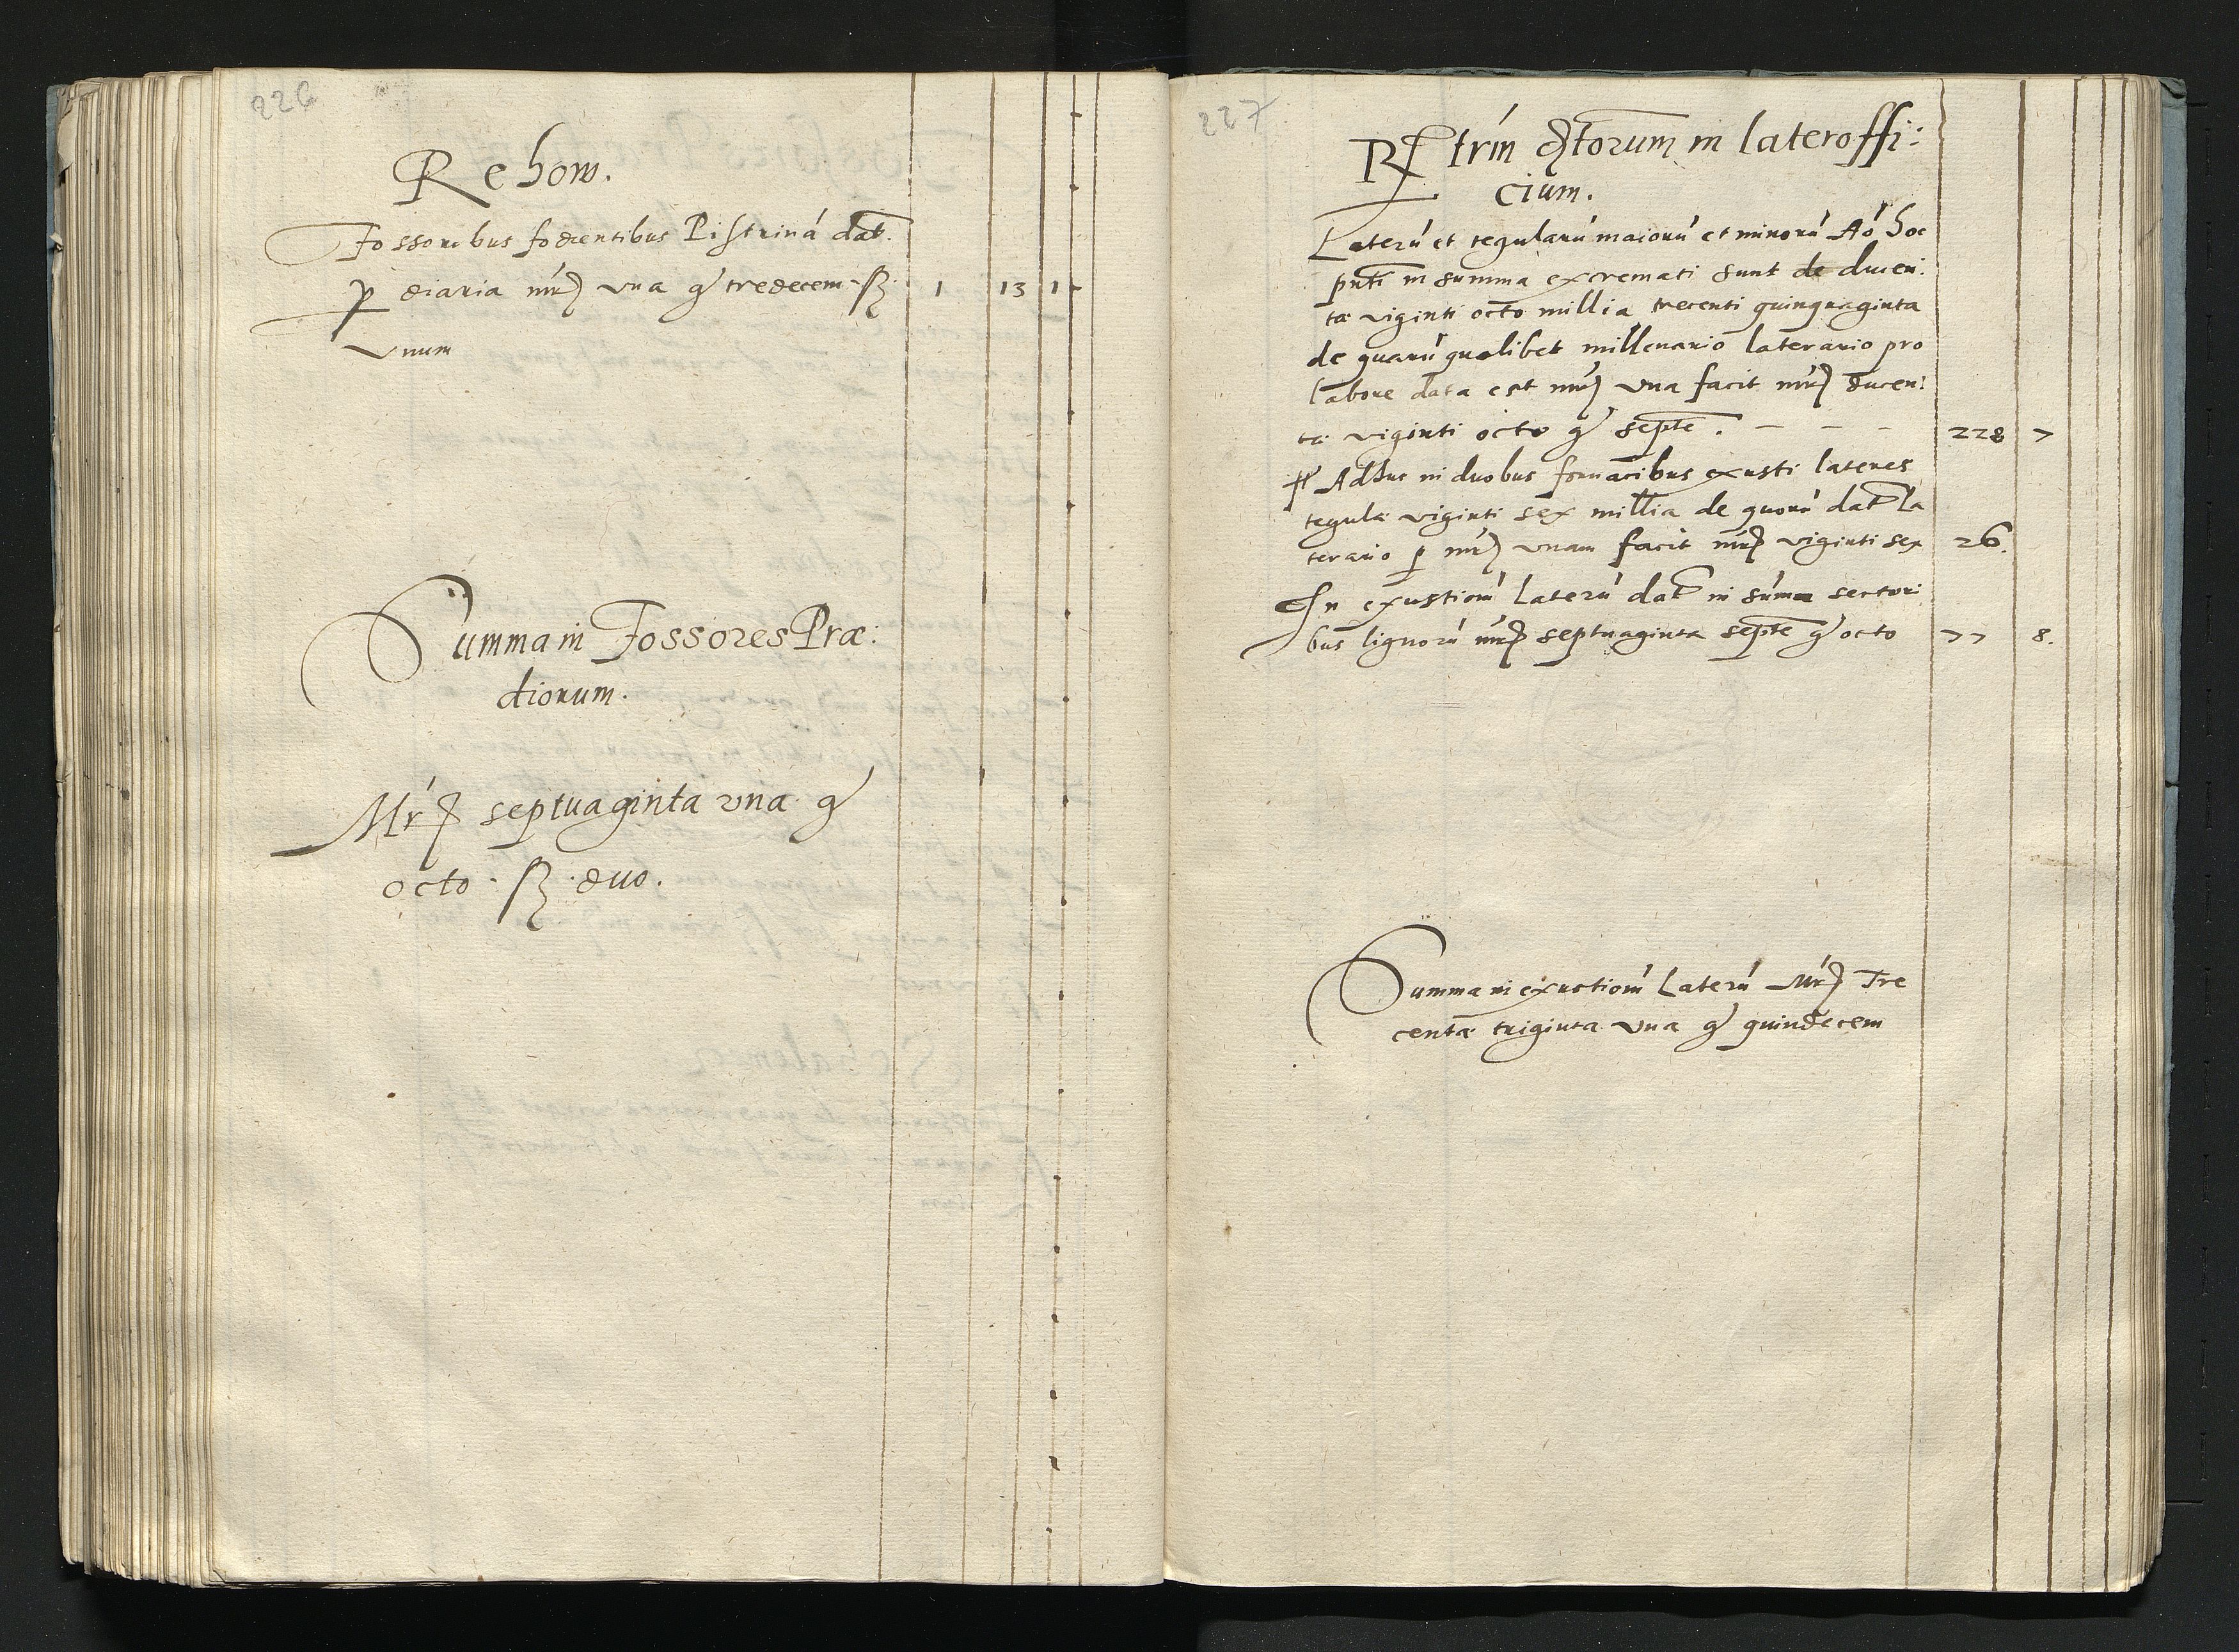 226
Rehow.
Fossoribus fodientibus Pistrinā dat.
p diaria mr̃ vna gͬ tredecem ß 1 13 1
vnum
Summa in Fossores Præ:
diorum.
Mr̃ septuaginta vna gͬ
octo ß duo.
227
in lateroffi:
cium.
Laterū et tegularū maiorū et minorū Aō hoc
pn̄ti in summa excremati sunt de ducen:
ta viginti octo millia trecenti quinquaginta
de quarū quolibet millenario laterario pro
labore data est mr̃ vna facit mr̃ ducen:
ta viginti octo gͬ septē . — — — 228 7
Adhuc in duobus fornacibus exusti lateres
tegulæ viginti sex millia de quorū dat la
terario p mr̃ vnam facit mr̃ viginti sex 26.
In exustionū laterū dat in sūma sectori
bus lignorū mr̃ septuaginta septē gͬ octo 77 8.
Summa in exustionū laterū Mr̃ Tre
centa triginta vna gͬ quindecem